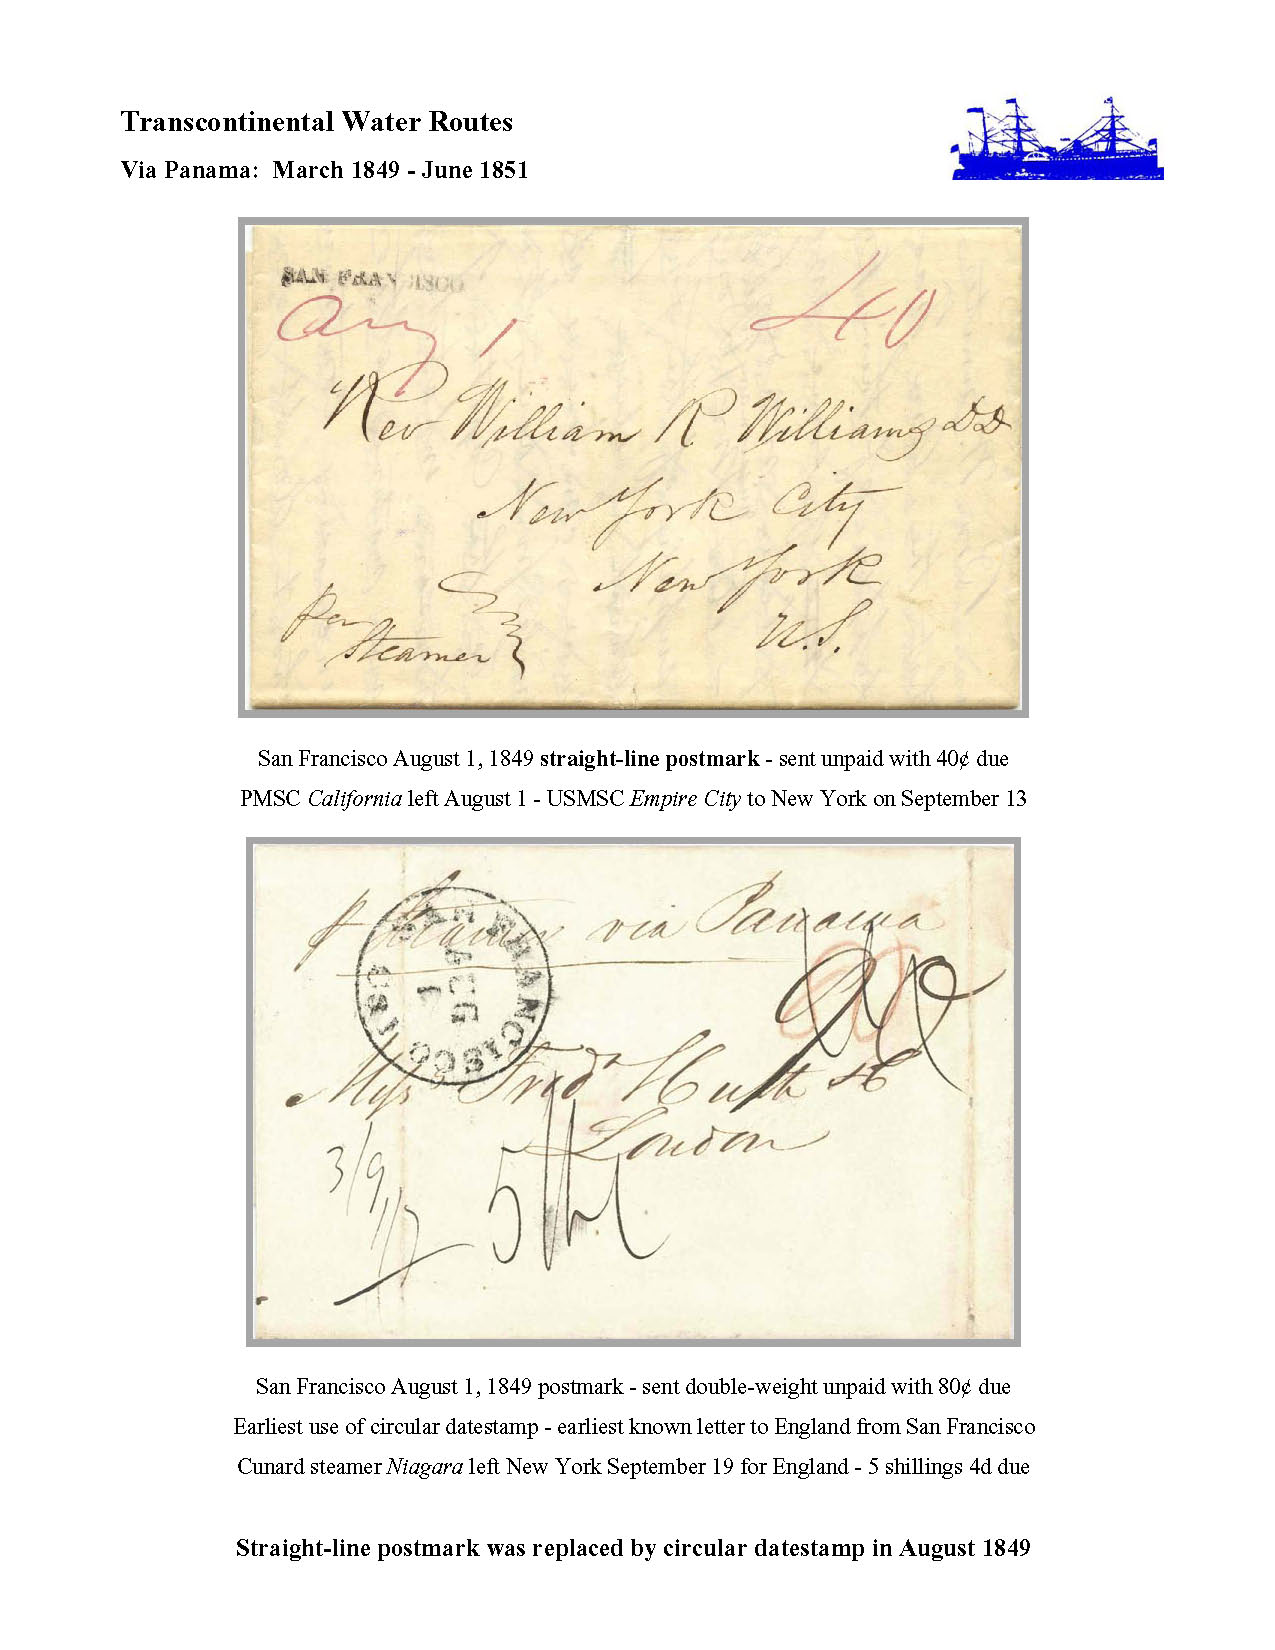 Transcontinental Water Routes
Via Panama: March 1849 - June 1851
SAN FRANCISCO
Aug 1
40
Rev William R Williams DD
New York City
New York
U.S.
per
Steamer
San Francisco August 1, 1849 straight-line postmark - sent unpaid with 40¢ due
PMSC California left August 1 - USMSC Empire City to New York on September 13
p Steamer via Panama
SAN FRANCISCO
AUG
1
80
Messrs Fredk Huth & Co
London
3/9
1/7
5/4
San Francisco August 1, 1849 postmark - sent double-weight unpaid with 80¢ due
Earliest use of circular datestamp - earliest known letter to England from San Francisco
Cunard steamer Niagara left New York September 19 for England - 5 shillings 4d due
Straight-line postmark was replaced by circular datestamp in August 1849